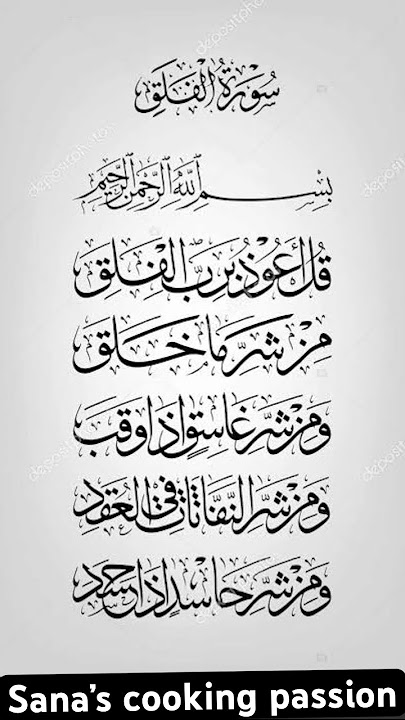 سُوْرَةُ الْفَلَقِ
بِسْمِ اللّٰهِ الرَّحْمٰنِ الرَّحِيْمِ
قُلْ أَعُوْذُ بِرَبِّ الْفَلَقِ
مِنْ شَرِّ مَا خَلَقَ
وَمِنْ شَرِّ غَاسِقٍ إِذَا وَقَبَ
وَمِنْ شَرِّ النَّفَّاثَاتِ فِي الْعُقَدِ
وَمِنْ شَرِّ حَاسِدٍ إِذَا حَسَدَ
Sana's cooking passion
depositphotos